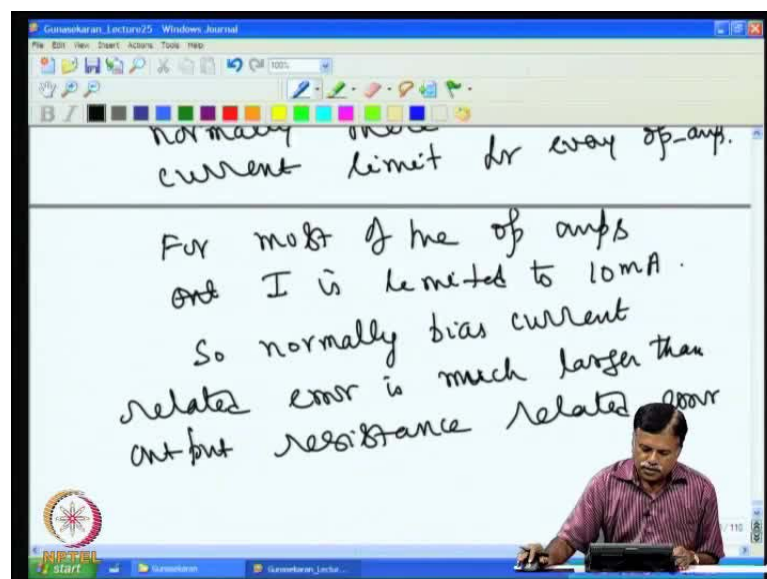 Gunasekaran_Lecture25 - Windows Journal
File Edit View Insert Actions Tools Help
100%
B I
normally there
current limit for every op-amp.
For most of the op amps
out I is limited to 10mA.
So normally bias current
related error is much larger than
output resistance related error
/ 110
NPTEL
start Gunasekaran Gunasekaran_Lectur...